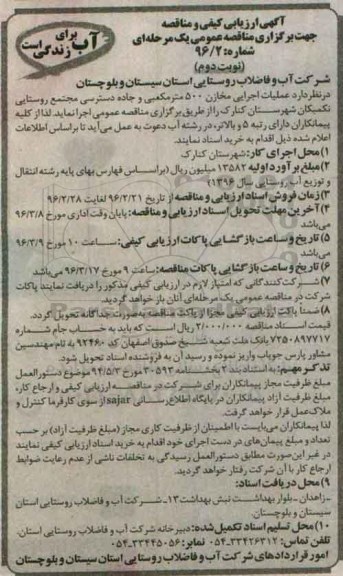 آب برای زندگی است
آگهی ارزیابی کیفی و مناقصه
جهت برگزاری مناقصه عمومی یک مرحله‌ای
شماره: ۹۶/۲
(نوبت دوم)
شرکت آب و فاضلاب روستایی استان سیستان و بلوچستان
در نظر دارد عملیات اجرایی مخازن ۵۰۰ مترمکعبی و جاده دسترسی مجتمع روستایی
نگینکان شهرستان کنارک را از طریق برگزاری مناقصه عمومی اجرا نماید. لذا از کلیه
پیمانکاران دارای رتبه ۵ و بالاتر، در رشته آب دعوت به عمل می‌آید تا براساس اطلاعات
اعلام شده ذیل اقدام به خرید اسناد نمایند.
۱) محل اجرای کار: شهرستان کنارک
۲) مبلغ برآورد اولیه ۱۳۵۸۲ میلیون ریال (براساس فهارس بهای پایه رشته انتقال
و توزیع آب روستایی سال ۱۳۹۶)
۳) زمان فروش اسناد ارزیابی و مناقصه از تاریخ ۹۶/۲/۲۱ لغایت ۹۶/۲/۲۸
۴) آخرین مهلت تحویل اسناد ارزیابی و مناقصه: پایان وقت اداری مورخ ۹۶/۳/۸
می‌باشد
۵) تاریخ و ساعت بازگشایی پاکات ارزیابی کیفی: ساعت ۱۰ مورخ ۹۶/۳/۹
می‌باشد
۶) تاریخ و ساعت بازگشایی پاکات مناقصه: ساعت ۹ مورخ ۹۶/۳/۱۷ می‌باشد
۷) شرکت‌کنندگانی که امتیاز لازم در ارزیابی کیفی مذکور را دریافت نمایند پاکات
شرکت در مناقصه عمومی یک مرحله‌ای آنان باز خواهد گردید.
۸) ضمناً پاکت ارزیابی کیفی مجزا از پاکت مناقصه به صورت جداگانه تحویل گردد.
قیمت اسناد مناقصه ۲/۰۰۰/۰۰۰ ریال است که باید به حساب جام شماره
۷۲۵۰۸۹۷۷۱۷ بانک ملت شعبه شیخ صدوق اصفهان کد ۹۲۴۸۰ به نام مهندسین
مشاور پارس جویاب واریز نموده و رسید آن به فروشنده اسناد تحویل شود.
تذکر مهم: به استناد بند ۲ بخشنامه ۳۰۵۹۳ مورخ ۹۴/۵/۳ موضوع دستورالعمل
مبلغ ظرفیت مجاز پیمانکاران برای شرکت در مناقصه ارزیابی کیفی و ارجاع کار،
مبلغ ظرفیت آزاد پیمانکاران در پایگاه اطلاع‌رسانی sajar از سوی کارفرما کنترل و
ملاک عمل قرار خواهد گرفت.
لذا پیمانکاران می‌بایست با اطمینان از ظرفیت کاری مجاز (مبلغ ظرفیت آزاد) بر حسب
تعداد و مبلغ پیمان‌های در دست اجرای خود اقدام به خرید اسناد ارزیابی کیفی نمایند
در غیر این صورت مطابق دستورالعمل رسیدگی به تخلفات ناشی از عدم رعایت ضوابط
ارجاع کار با آن شرکت رفتار خواهد گردید.
۹) محل دریافت اسناد:
- زاهدان - بلوار بهداشت نبش بهداشت ۱۳ - شرکت آب و فاضلاب روستایی استان
سیستان و بلوچستان.
۱۰) محل تسلیم اسناد تکمیل شده: دبیرخانه شرکت آب و فاضلاب روستایی استان.
تلفن تماس: ۳۳۴۲۶۳۱۲-۰۵۴ نمابر: ۳۳۴۴۵۰۵۶-۰۵۴
امور قراردادهای شرکت آب و فاضلاب روستایی استان سیستان و بلوچستان